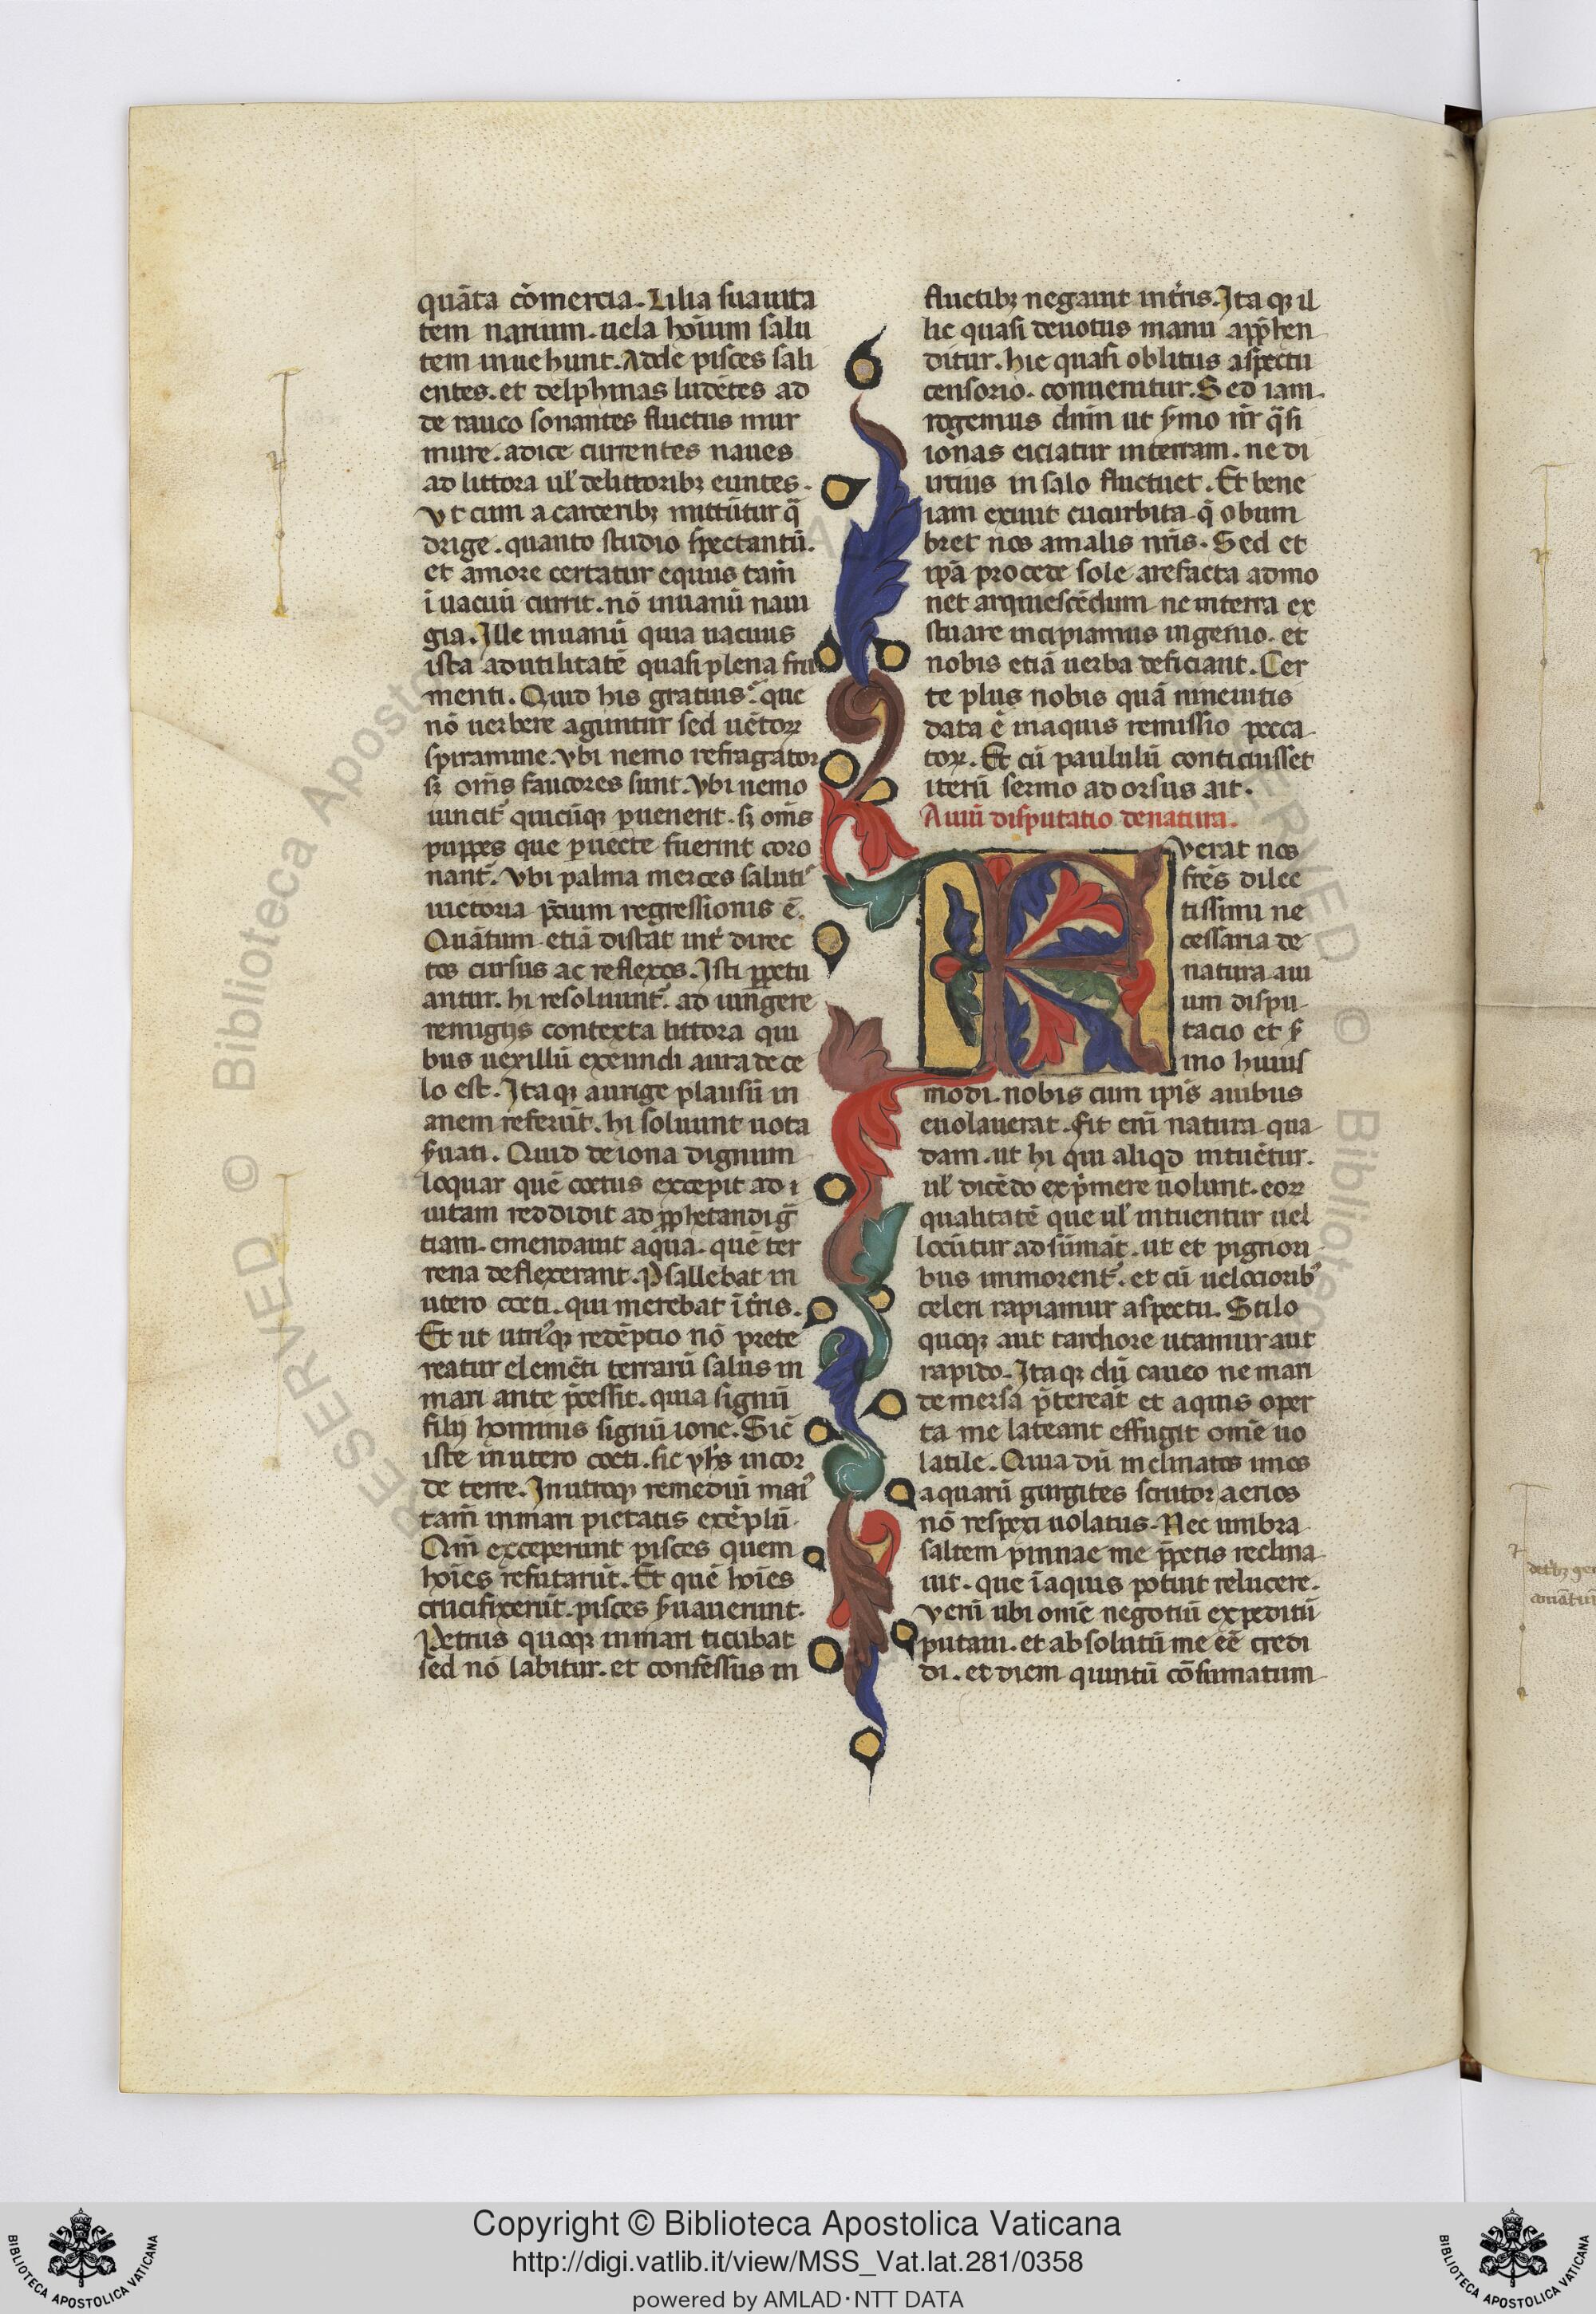 quãta cõmercia. Lilia suauita
tem narium. uela hoĩum salu
tem inuehunt. Adde pisces sali
entes. et delphinas ludẽtes ad
de rauco sonantes fluctus mur
mure. adice currentes naues
ad littora ul' de littoribꝫ euntes.
Vt cum a carceribꝫ mittũtur q̃
drige. quanto studio spectantũ.
et amore certatur equus tam̃
ĩ uacuũ currit. nõ inuanũ naui
gia. Ille inuanũ quia uacuus
ista ad utilitatẽ quasi plena fru
menti. Quid his gratius. que
nõ uerbere aguntur sed uẽtoꝝ
spiramine. vbi nemo refragator
sꝫ om̃s fautores sunt. vbi nemo
uincit᷑ quicũqꝫ ꝑuenerit. sꝫ om̃s
puppes que ꝑuecte fuerint coro
nant᷑. vbi palma merces saluti᷑
uictoria p̃cium regressionis ẽ.
Quãtum etiã distat int᷑ direc
tos cursus ac reflexos. Isti ꝑpetu
antur. hi resoluunt᷑. ad iung̃ere
remigijs contexta littora qui
bus uexillũ exeundi aura de ce
lo est. Itaqꝫ aurige plausũ in
anem referũt. hi soluunt uota
s̃uati. Quid de iona dignum
loquar quẽ coetus excepit ad i
uitam reddidit ad ꝓphetandi g̃
tiam. emendauit aqua. quẽ ter
rena deflexerant. Psallebat in
utero coeti. qui merebat ĩ tr̃is.
Et ut utriꝰqꝫ redẽptio nõ prete
reatur elemẽti terrarũ salus in
mari ante p̃cessit. quia signũ
filij hominis signũ ione. Sic̃
iste in utero coeti. sic yh̃s in cor
de terre. In utroqꝫ remediũ maiꝰ
tam̃ in mari pietatis exẽplũ.
Qm̃ exceperunt pisces quem
hoĩes refutarũt. Et quẽ hoĩes
crucifixerũt. pisces s̃uauerunt.
Petrus quoqꝫ in mari titubat
sed nõ labitur. et confessus in
fluctibꝫ negauit in tr̃is. Ita qꝫ il
lic quasi deuotus manu app̃hen
ditur. hic quasi oblitus aspectu
censorio. conuenitur. Sed iam
rogemus dñm ut s̃mo nr̃ q̃si
ionas eiciatur in terram. ne di
utius in salo fluctuet. Et bene
iam exiuit cucurbita q̃ obum
bret nos a malis nr̃is. Sed et
ip̃a procede sole arefacta admo
net arquiescẽdum ne in terra ex
stuare incipiamus ingenio. et
nobis etiã uerba deficiant. Cer
te plus nobis quã niniuitis
data ẽ in aquis remissio pecca
toꝝ. Et cũ paululũ conticuisset
iterũ sermo ad orsus ait.
Auiũ disputatio de natura.
Fverat nos
fr̃es dilec
tissimi ne
cessaria de
natura aui
um dispu
tacio et s̃
mo huius
modi. nobis cum ip̃is auibus
euolauerat. fit eni᷑ natura qua
dam. ut hi qui aliqd intuẽtur.
ul' dicẽdo exp̃mere uolunt. eoꝝ
qualitatẽ que ul' intuentur uel
locũtur adsũmãt. ut et pigriori
bus immorent᷑. et cũ uelociorib᷑
celeri rapiamur aspectu. Stilo
quoqꝫ aut tardiore utamur aut
rapido. Itaqꝫ dũ caueo ne mari
demersa p̃tereãt et aquis oper
ta me lateant effugit om̃e uo
latile. Quia dũ inclinatos imos
aquarũ gurgites scrutor aerios
nõ respexi uolatus. Nec umbra
saltem pinnae me p̃petis reclina
uit. que ĩ aquis potuit relucere.
Verũ ubi om̃e negotiũ expeditũ
putaui. et absolutũ me eẽ credi
di. et diem quintũ cõsumatum
Copyright © Biblioteca Apostolica Vaticana
http://digi.vatlib.it/view/MSS_Vat.lat.281/0358
powered by AMLAD·NTT DATA